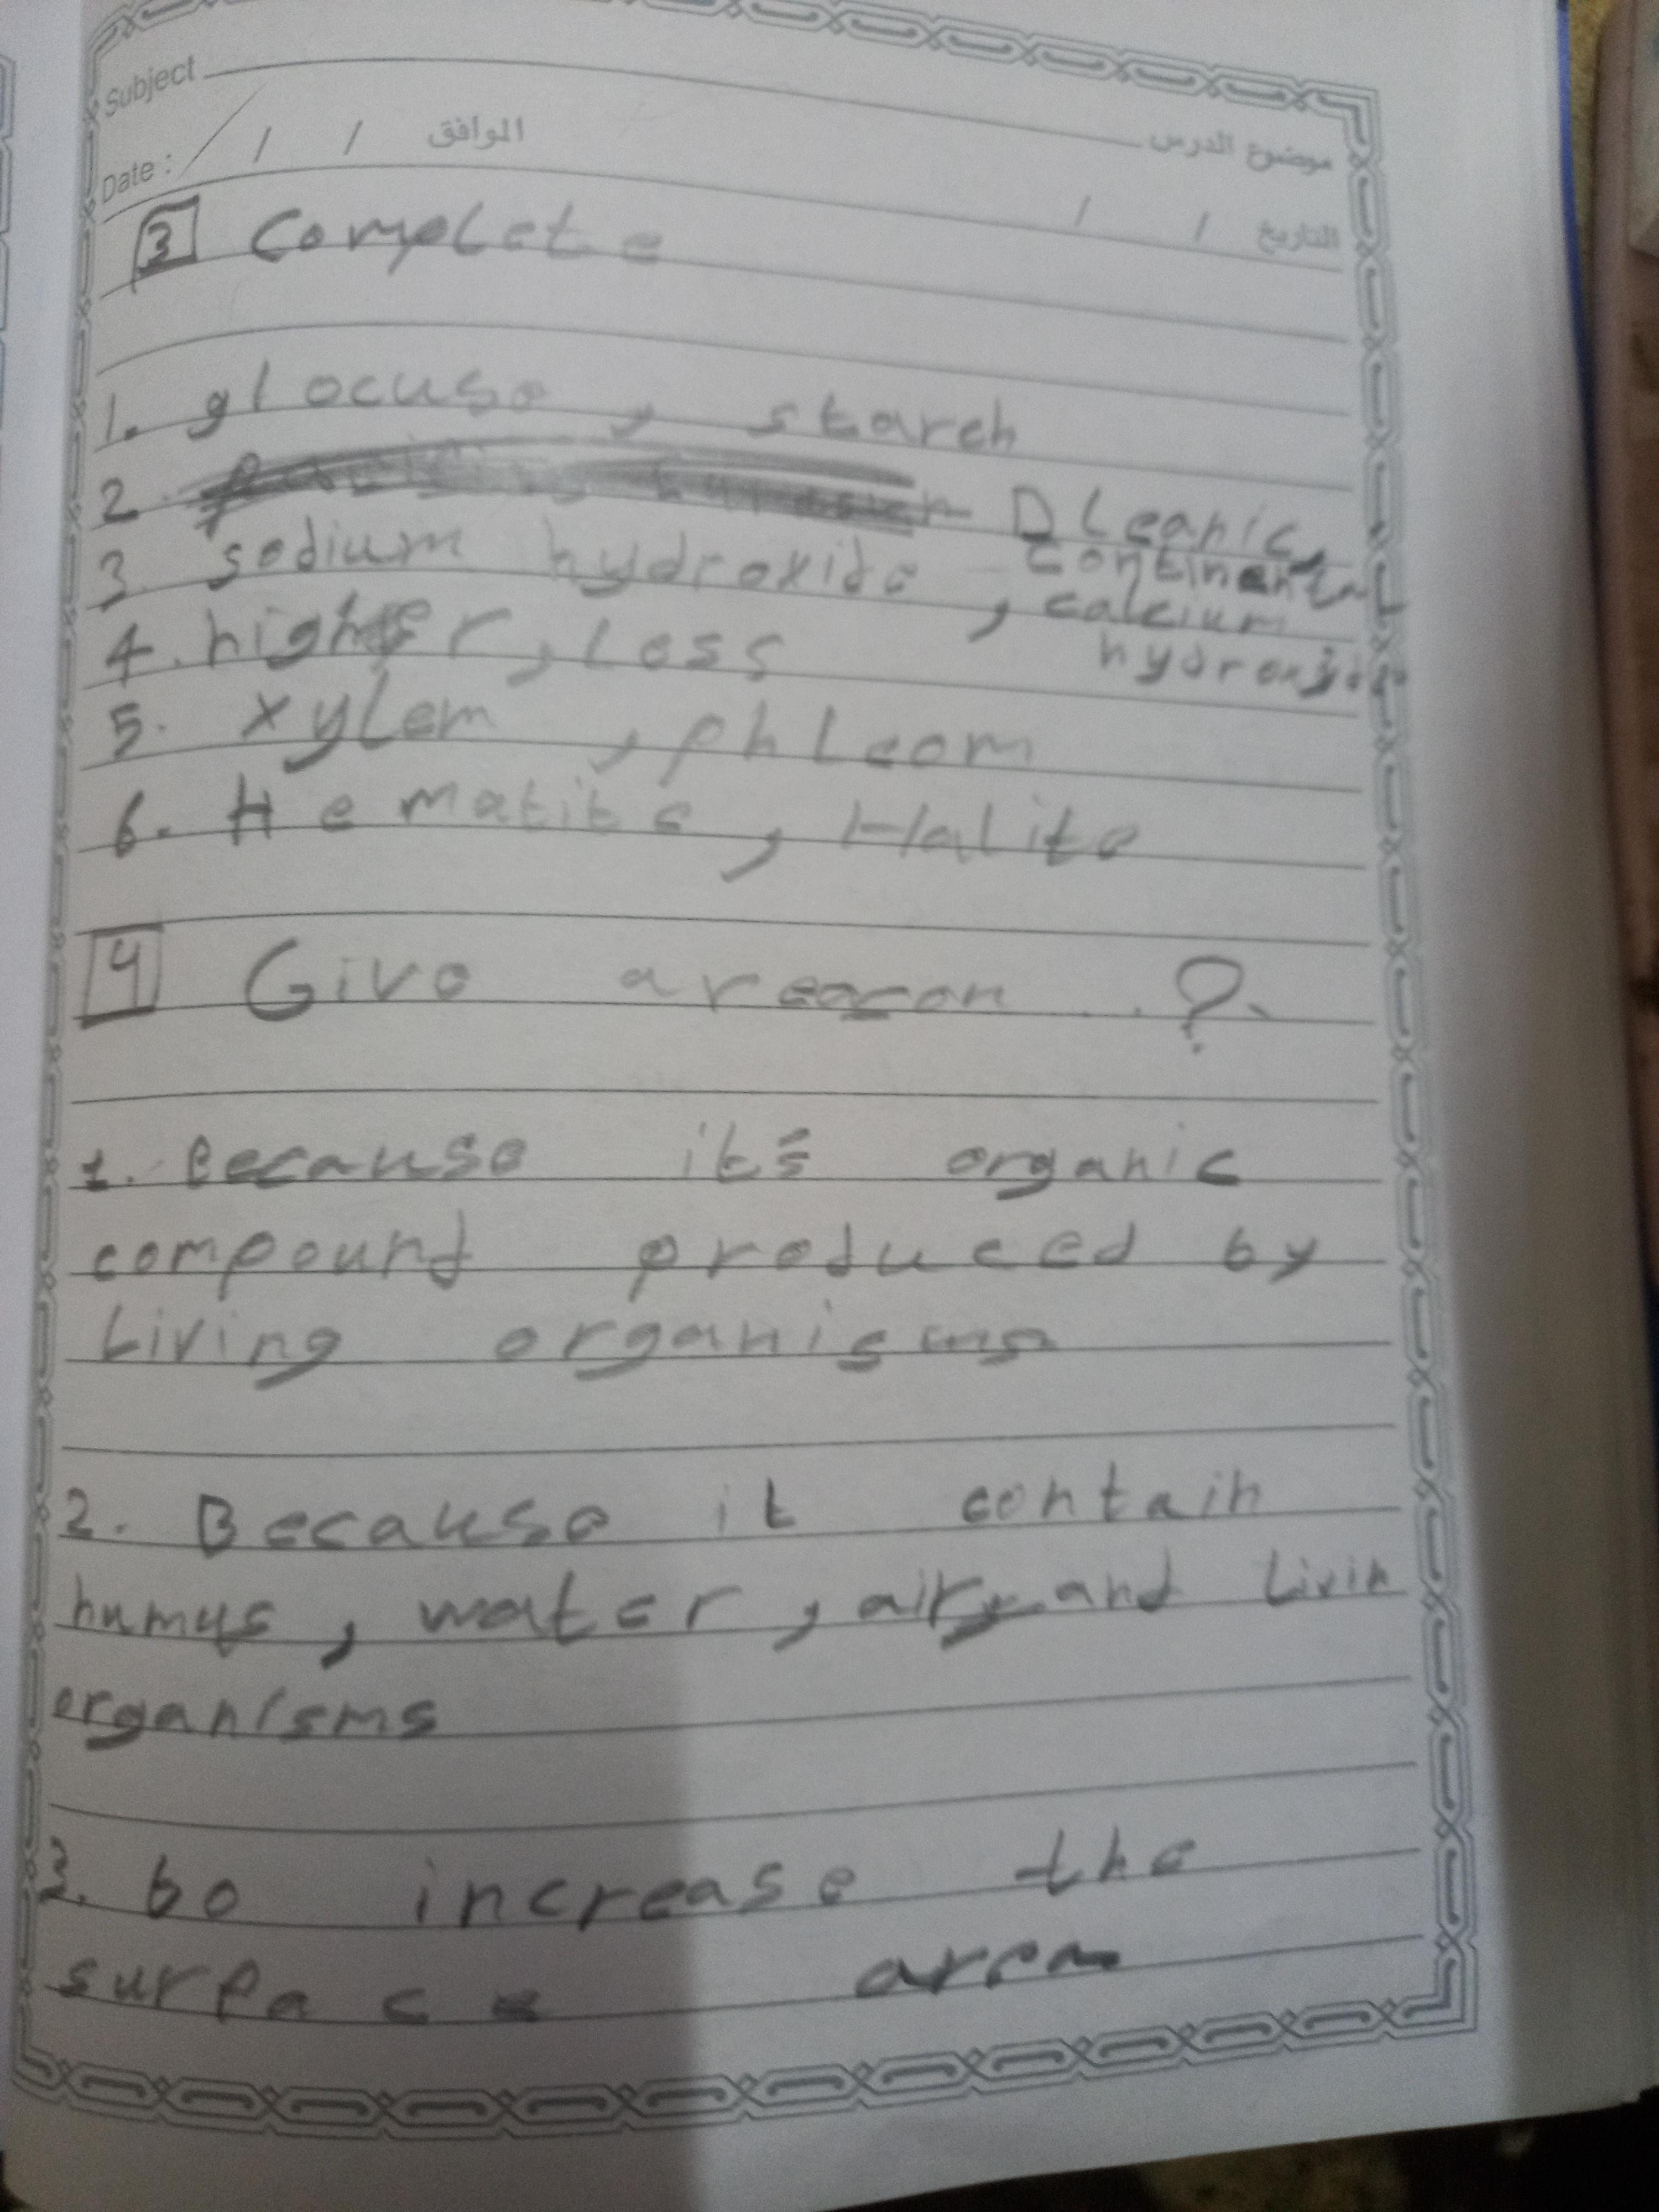 Subject موضوع الدرس
Date : / / / الموافق / / التاريخ
3 Complete
1. glocuse , starch
2. Oleanic, continental
3. sodium hydroxide , calcium hydroxide
4. higher , Less
5. xylem , phleom
6. Hematite , Halite
4 Give a reason . ?
1. Because it's organic
compound produced by
Living organisms
2. Because it contain
humus , water , air, and Livin
organisms
3. to increase the
surface area